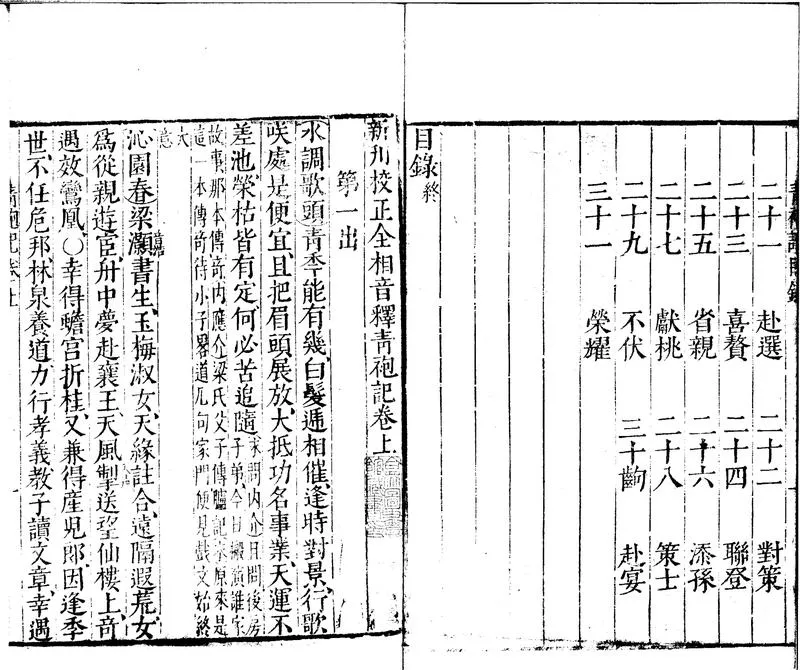 二十一 赴選 二十二 對策
二十三 喜贅 二十四 聯登
二十五 省親 二十六 添孫
二十七 獻桃 二十八 策士
二十九 不伏 三十齣 赴宴
三十一 榮耀
目錄終
新刊校正全相音釋青袍記卷上
第一出
水調歌頭青年能有幾白髮遞相催逢時對景行歌
咲處是便宜且把眉頭展放大抵功名事業天運不
差池榮枯皆有定何必苦追隨末問内介且問後房
子弟今日搬演誰家
故事那本傳奇内應介梁氏父子傳臚記原來是
這一本傳奇待小子畧道几句家門便見戲文始終
大意
沁園春梁灝書生玉梅淑女天緣註合遠隔遐荒女
爲從親遊宦舟中夢赴襄王天風掣送望仙樓上奇
遇效鸞凰〇幸得蟾宮折桂又兼得産兒郎因逢季
世不任危邦林泉養道力行孝義教子讀文章幸遇